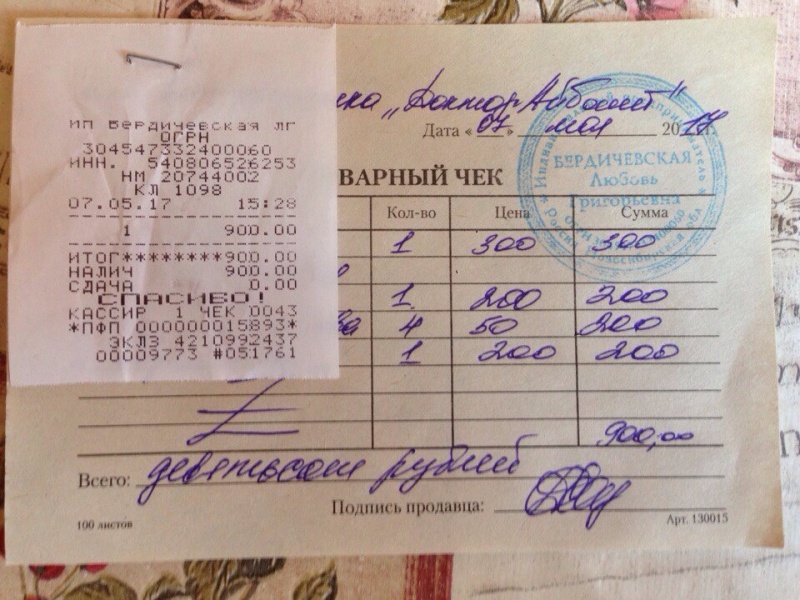 ИП Бердичевская ЛГ
ОГРН
304547332400060
ИНН. 540806526253
НМ 20744002
КЛ 1098
07.05.17 15:28
1 900.00
ИТОГ********900.00
НАЛИЧ 900.00
СДАЧА 0.00
СПАСИБО!
КАССИР 1 ЧЕК 0043
*ПФП 000000015893*
ЭКЛЗ 4210992437
00009773 #051761
„Доктор Айболит"
Дата «07» мая 2017г.
ВАРНЫЙ ЧЕК
Кол-во Цена Сумма
1 300 300
1 200 200
4 50 200
1 200 200
900,00
Всего: девятьсот рублей
Подпись продавца:
100 листов Арт. 130015
БЕРДИЧЕВСКАЯ
Любовь
Григорьевна